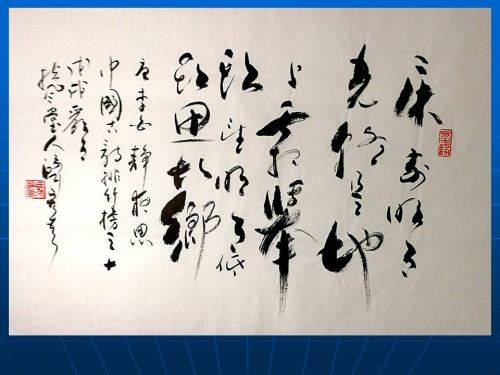 床前明月
光疑是地
上霜舉
頭望明月低
頭思故鄉
唐李白靜夜思
中國古詩排行榜之十